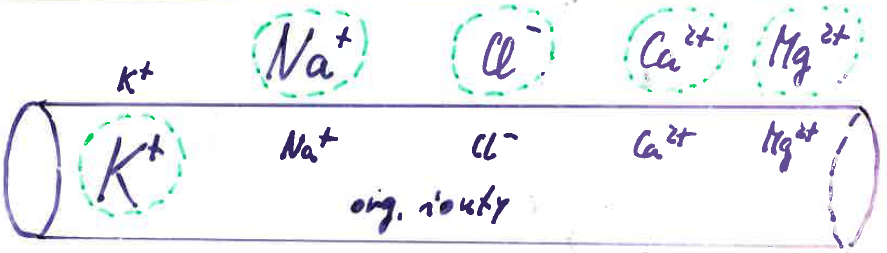 K⁺ Na⁺ Cl⁻ Ca²⁺ Mg²⁺
K⁺ Na⁺ Cl⁻ Ca²⁺ Mg²⁺
org. ionty